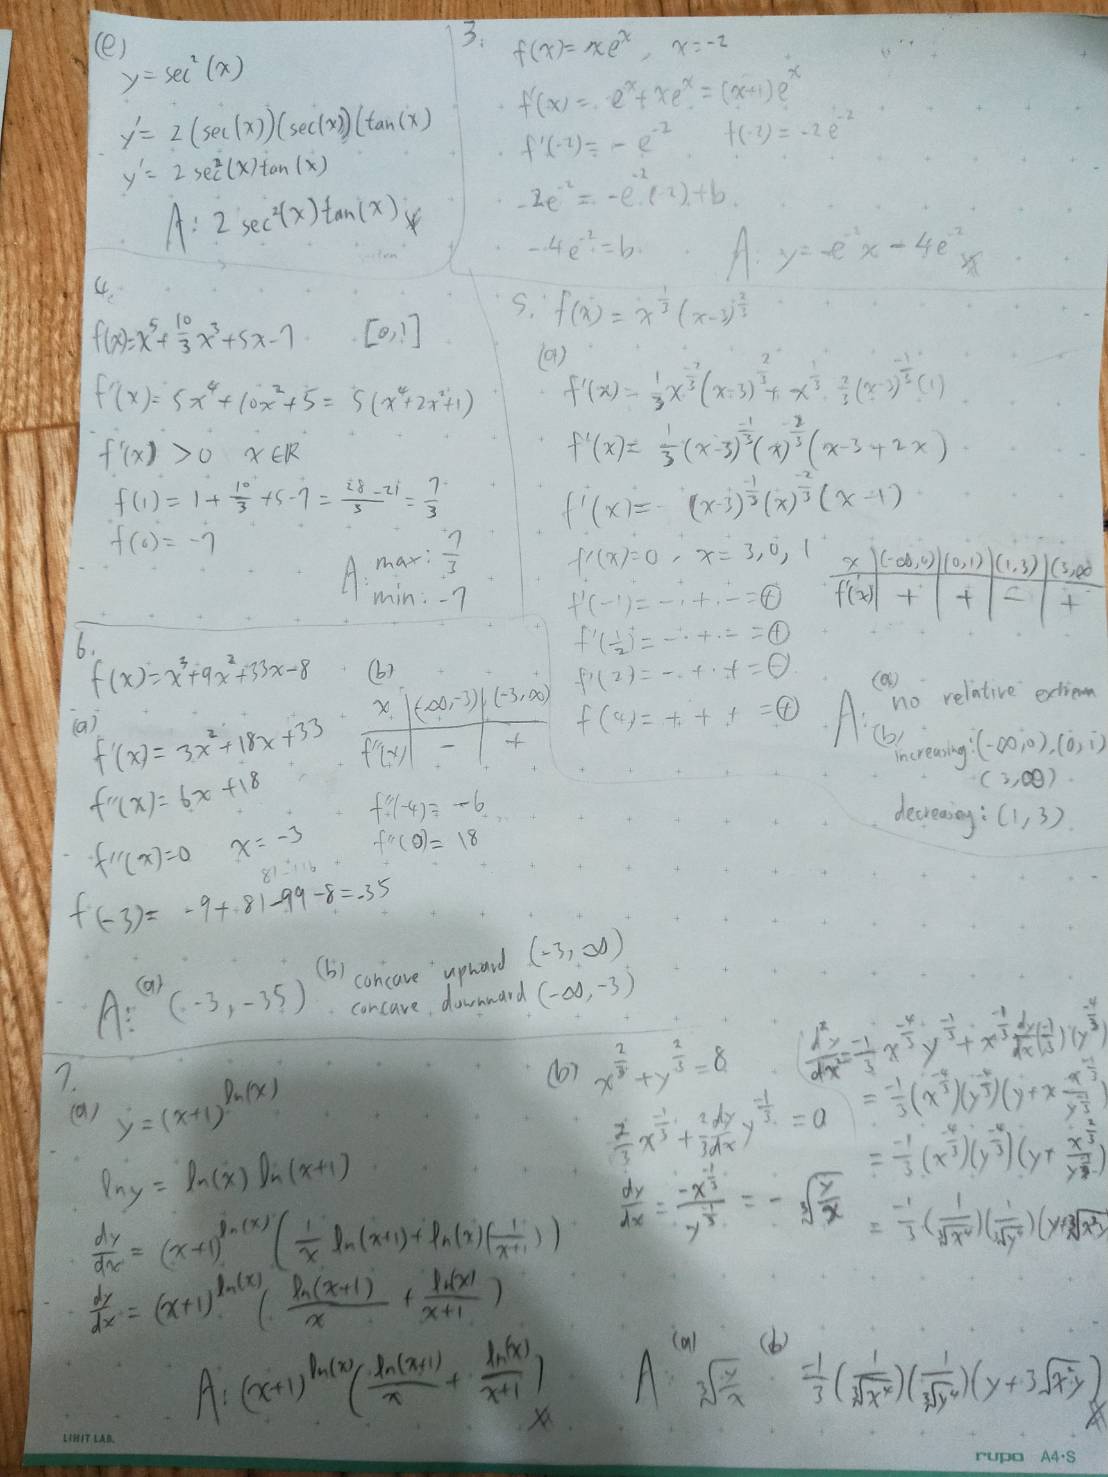 (e)
y = sec²(x)
y' = 2(sec(x))(sec(x))(tan(x)
y' = 2 sec²(x)tan(x)
A: 2 sec²(x)tan(x)
3.
f(x) = xe^x, x = -2
f'(x) = e^x + xe^x = (x+1)e^x
f'(-2) = -e^-2 f(-2) = -2e^-2
-2e^-2 = -e^-2(-2)+b.
-4e^-2 = b
A: y = -e^-2x - 4e^-2
4.
f(x)=x⁵+10/3x³+5x-7 [0,1]
f'(x) = 5x⁴+10x²+5 = 5(x⁴+2x²+1)
f'(x) > 0 x∈R
f(1) = 1 + 10/3 + 5-7 = 28-21/3 = 7/3
f(0) = -7
A: max: 7/3
min: -7
5. f(x) = x^1/3 (x-3)^2/3
(a)
f'(x) = 1/3x^-2/3(x-3)^2/3 + x^1/3 · 2/3(x-3)^-1/3(1)
f'(x) = 1/3(x-3)^-1/3(x)^-2/3(x-3+2x)
f'(x) = (x-3)^-1/3(x)^-2/3(x-1)
f'(x)=0, x = 3,0,1
f'(-1) = - · + · - = ⊕
f'(1/2) = - · + · - = ⊕
f'(2) = - · + · + = ⊖
f(4) = + + + = ⊕
x (-∞,0) (0,1) (1,3) (3,∞
f'(x) + + - +
A: (a) no relative extrema
(b) increasing: (-∞,0), (0,1)
(3,∞)
decreasing: (1,3)
6.
f(x) = x³+9x²+33x-8
(a)
f'(x) = 3x²+18x+33
f''(x) = 6x+18
f''(x)=0 x = -3
f(-3) = -9+81-99-8=-35
(b)
x (-∞,-3) (-3,∞)
f''(x) - +
f''(-4) = -6
f''(0) = 18
A: (a) (-3,-35) (b) concave upward (-3,∞)
concave downward (-∞,-3)
7.
(a) y = (x+1)^ln(x)
lny = ln(x) ln(x+1)
dy/dx = (x+1)^ln(x) (1/x ln(x+1)+ln(x)(1/x+1))
dy/dx = (x+1)^ln(x) (ln(x+1)/x + ln(x)/x+1)
A: (x+1)^ln(x) (ln(x+1)/x + ln(x)/x+1)
(b) x^2/3 + y^2/3 = 8
2/3 x^-1/3 + 2/3 dy/dx y^-1/3 = 0
dy/dx = -x^-1/3/y^-1/3 = -∛y/x
d²y/dx² = -1/3 x^-4/3 y^-1/3 + x^-1/3 dy/dx(-1/3)(y^-4/3
= -1/3(x^-4/3)(y^-4/3)(y + x
= -1/3(x^-4/3)(y^-4/3)(y +
= -1/3(1/∛x⁴)(1/∛y⁴)(y+∛x²y
A (a) ∛y/x (b) -1/3(1/∛x⁴)(1/∛y⁴)(y+3√x²y)
LIHIT LAB.
rupo A4·S